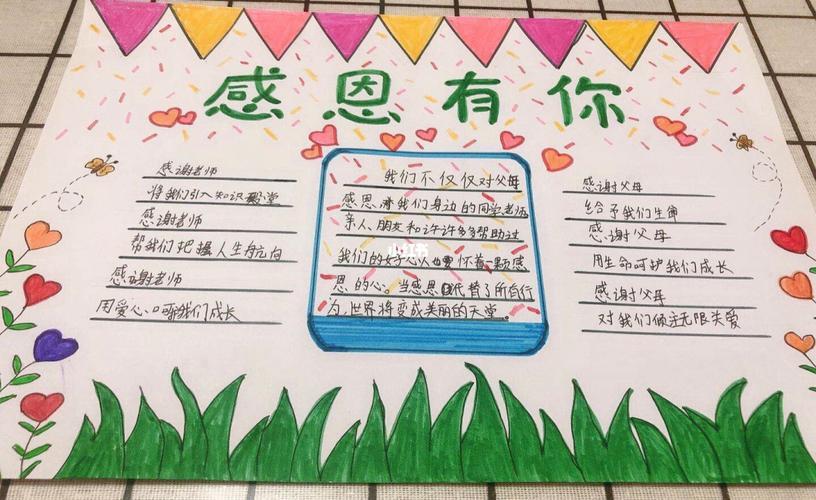 感恩有你
感谢老师
将我们引入知识殿堂
感谢老师
帮我们把握人生航向
感谢老师
用爱心呵我们成长
我们不仅仅对父母
感恩,我们身边的同学老师
亲人、朋友和许许多多帮助过
我们的好心人 要怀着一颗感
恩的心。当感恩代替了所有行
为,世界将变成美丽的天堂。
小红书
感谢父母
给予我们生命
感谢父母
用生命呵护我们成长
感谢父母
对我们倾注无限关爱